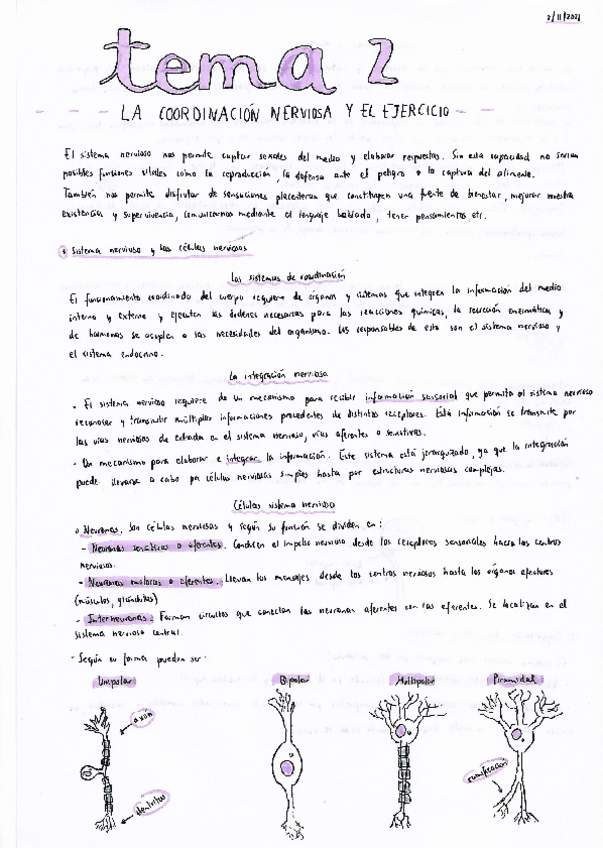 2/11/2021
tema 2
LA COORDINACIÓN NERVIOSA Y EL EJERCICIO
El sistema nervioso nos permite captar señales del medio y elaborar respuestas. Sin esta capacidad no serían
posibles funciones vitales como la reproducción, la defensa ante el peligro o la captura del alimento.
También nos permite disfrutar de sensaciones placenteras que constituyen una fuente de bienestar, mejorar nuestra
existencia y supervivencia, comunicarnos mediante el lenguaje hablado, tener pensamientos, etc.
Sistema nervioso y las células nerviosas
Los sistemas de coordinación
El funcionamiento coordinado del cuerpo requiere de órganos y sistemas que integren la información del medio
interno y externo y ejecuten las órdenes necesarias para las reacciones químicas, la secreción enzimática y
de hormonas se acoplen a las necesidades del organismo. Los responsables de esto son el sistema nervioso y
el sistema endocrino.
La integración nerviosa
- El sistema nervioso requiere de un mecanismo para recibir información sensorial que permita al sistema nervioso
reconocer y transmitir múltiples informaciones procedentes de distintos receptores. Está información se transmite por
las vías nerviosas de entrada en el sistema nervioso, vías aferentes o sensitivas.
- Un mecanismo para elaborar e integrar la información. Este sistema está jerarquizado, ya que la integración
puede llevarse a cabo por células nerviosas simples hasta por estructuras nerviosas complejas.
Células sistema nervioso
o Neuronas. Son células nerviosas y según su función se dividen en:
- Neuronas sensitivas o aferentes. Conducen el impulso nervioso desde los receptores sensoriales hacia los centros
nerviosos.
- Neuronas motoras o eferentes. Llevan los mensajes desde los centros nerviosos hasta los órganos efectores
(músculos, glándulas)
- Interneuronas. Forman circuitos que conectan las neuronas aferentes con las eferentes. Se localizan en el
sistema nervioso central.
- Según su forma pueden ser:
Unipolar Bipolar Multipolar Piramidal
axón
dendritas
ramificación